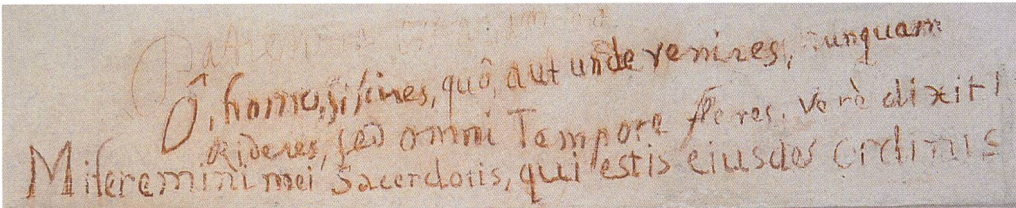 Patiem
Ô, homo, si scires, quô, aut unde venires, nunquam
rideres, sed omni Tempore fleres. Verè dixit!
Miseremini mei Sacerdotis, qui estis eiusdes Ordinis